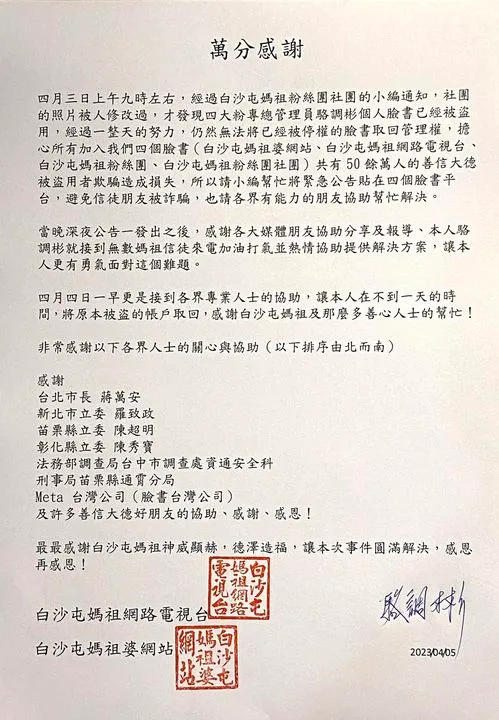 萬分感謝
四月三日上午九時左右，經過白沙屯媽祖粉絲團社團的小編通知，社團
的照片被人修改過，才發現四大粉專總管理員駱調彬個人臉書已經被盜
用，經過一整天的努力，仍然無法將已經被停權的臉書取回管理權，擔
心所有加入我們四個臉書（白沙屯媽祖婆網站、白沙屯媽祖網路電視台、
白沙屯媽祖粉絲團、白沙屯媽祖粉絲團社團）共有 50 餘萬人的善信大德
被盜用者欺騙造成損失，所以請小編幫忙將緊急公告貼在四個臉書平
台，避免信徒朋友被詐騙，也請各界有能力的朋友協助幫忙解決。
當晚深夜公告一發出之後，感謝各大媒體朋友協助分享及報導、本人駱
調彬就接到無數媽祖信徒來電加油打氣並熱情協助提供解決方案，讓本
人更有勇氣面對這個難題。
四月四日一早更是接到各界專業人士的協助，讓本人在不到一天的時
間，將原本被盜的帳戶取回，感謝白沙屯媽祖及那麼多善心人士的幫忙！
非常感謝以下各界人士的關心與協助（以下排序由北而南）
感謝
台北市長 蔣萬安
新北市立委 羅致政
苗栗縣立委 陳超明
彰化縣立委 陳秀寳
法務部調查局台中市調查處資通安全科
刑事局苗栗縣通霄分局
Meta 台灣公司（臉書台灣公司）
及許多善信大德好朋友的協助、感謝、感恩！
最最感謝白沙屯媽祖神威顯赫，德澤造福，讓本次事件圓滿解決，感恩
再感恩！
白沙屯媽祖網路電視台
白沙屯
媽祖網路
電視台
駱調彬
白沙屯媽祖婆網站
白沙屯
媽祖婆
網站
2023/04/05